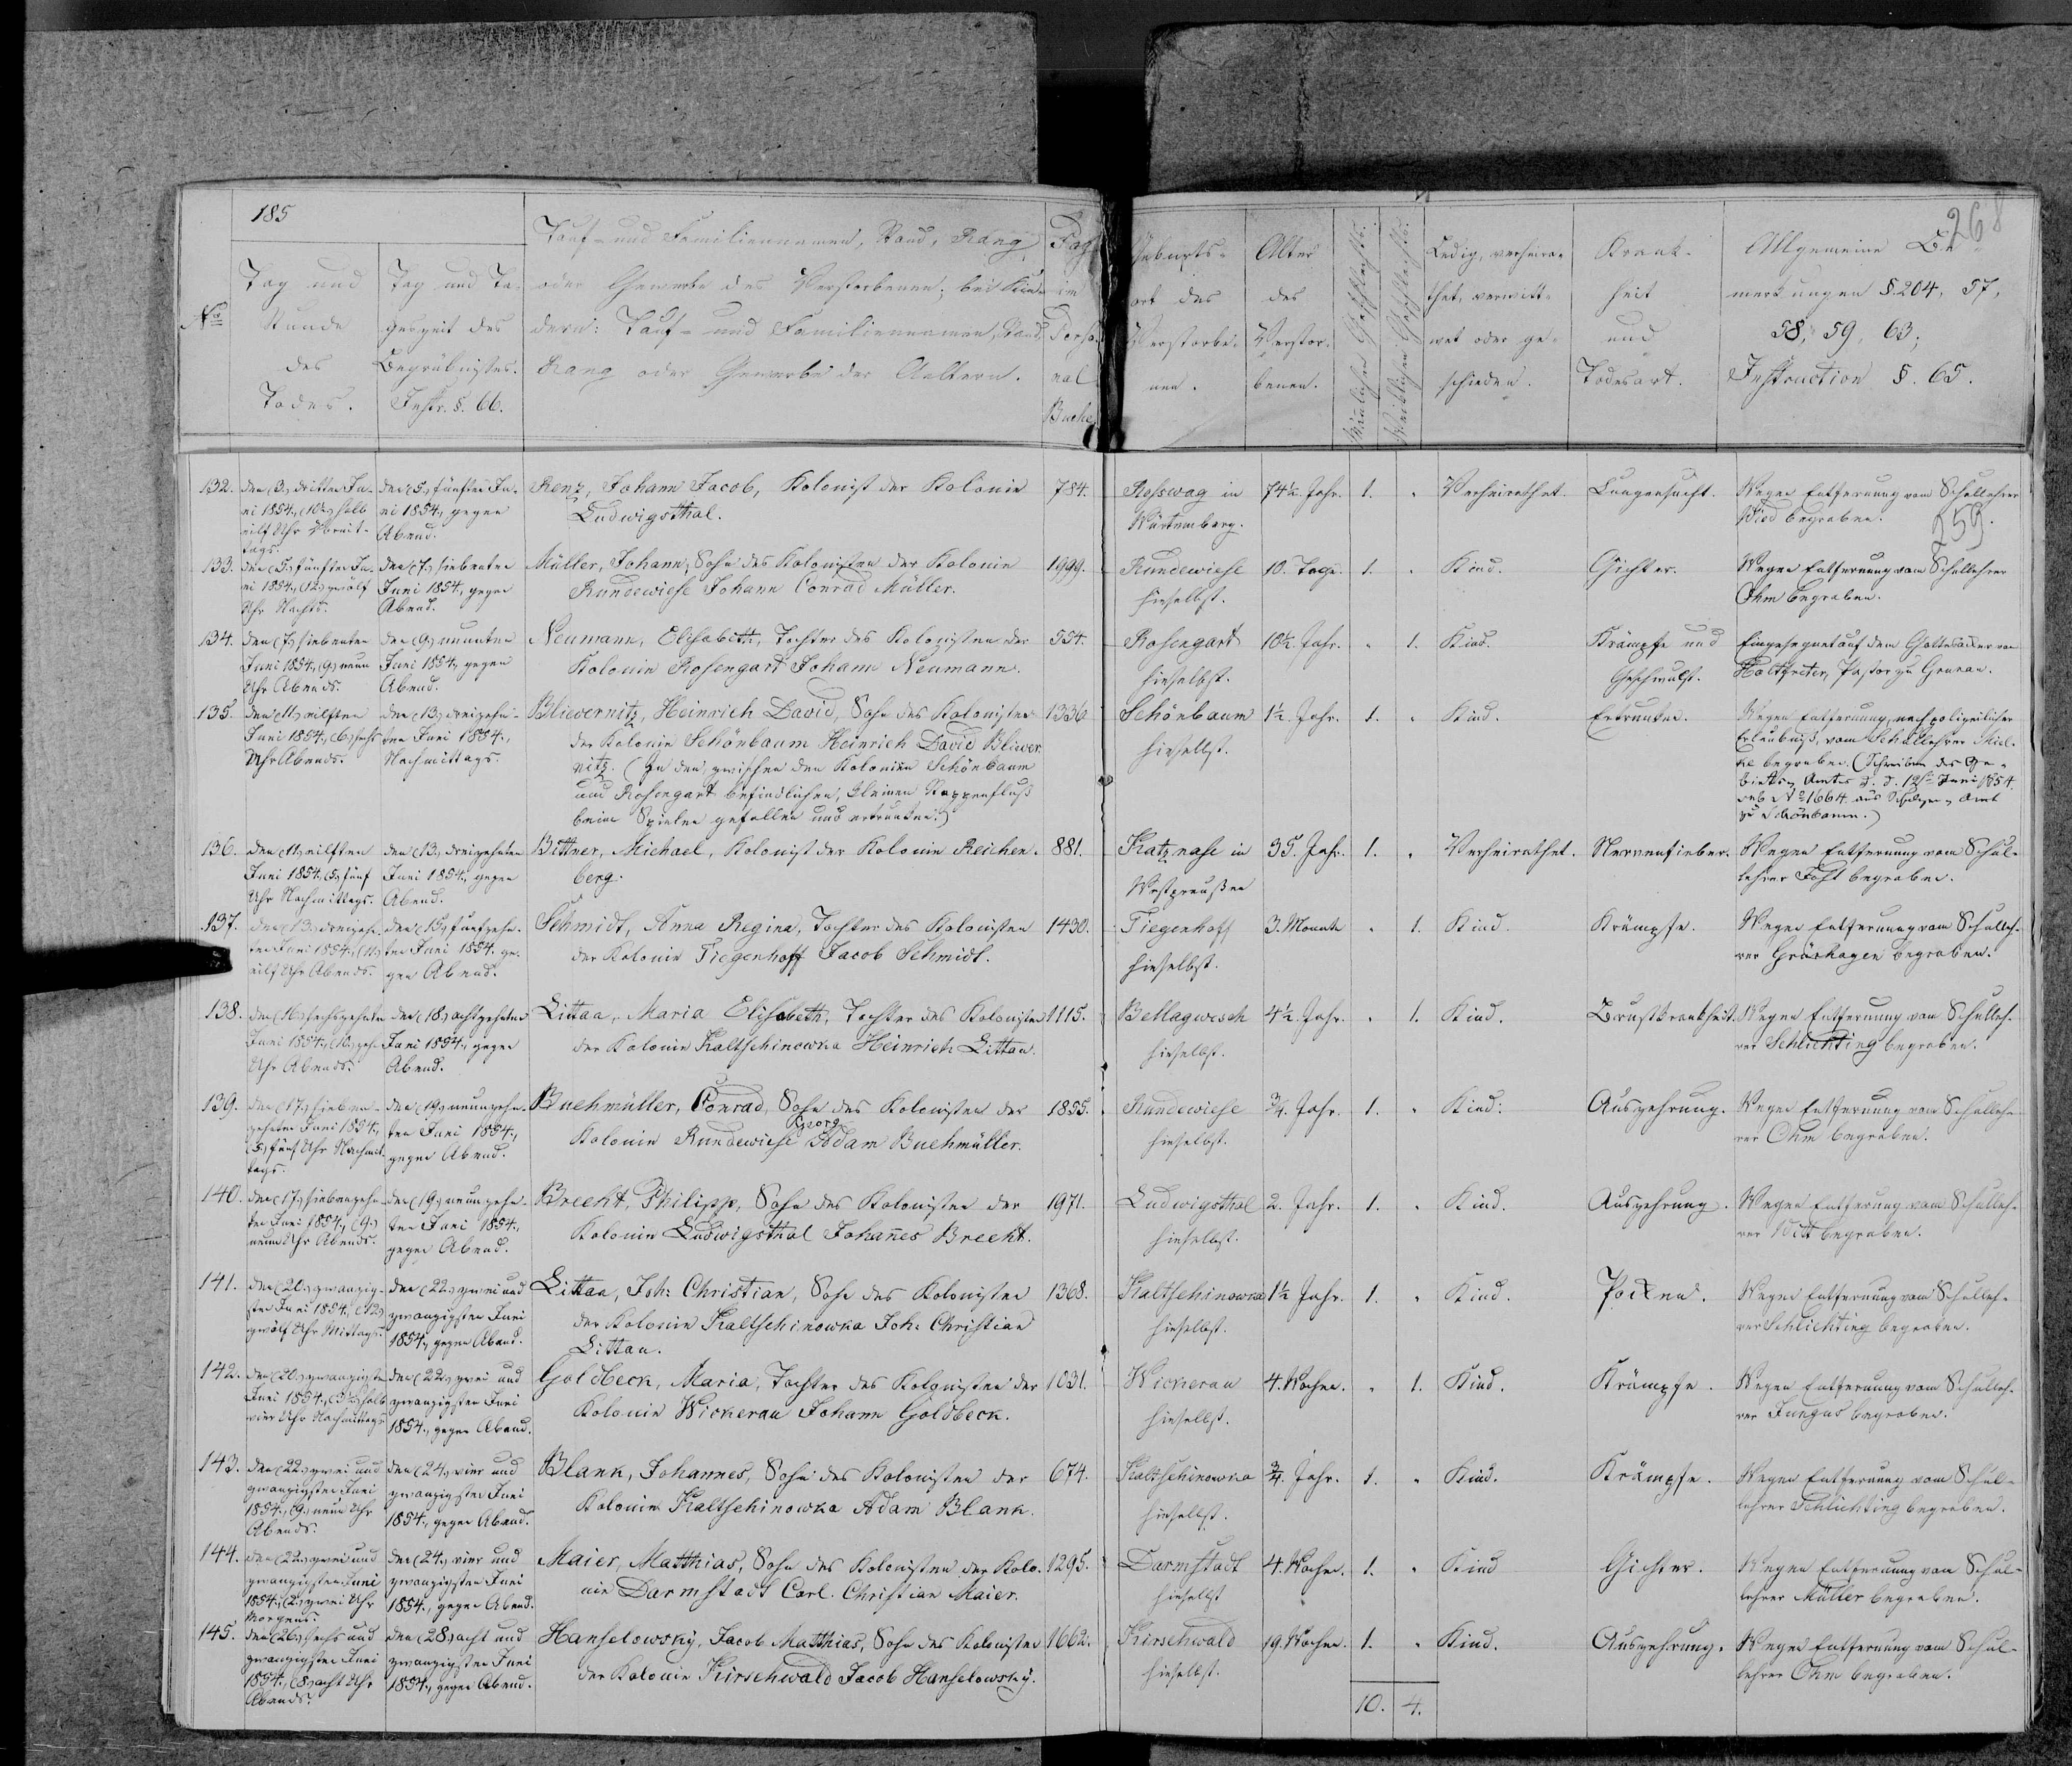 185
268
259.
No
Tag und
Stunde
des
Todes.
Tag und Ta-
geszeit des
Begräbnisses.
Instr. §. 66.
Tauf- und Familiennamen, Stand, Rang
oder Gewerbe des Verstorbenen; bei Kin-
dern: Tauf- und Familiennamen, Stand,
Rang oder Gewerbe der Aeltern.
Pag.
im
Perso-
nal
Buche
Geburts-
ort des
Verstorbe-
nen.
Alter
des
Verstor-
benen.
Männlichen Geschlechts.
Weiblichen Geschlechts.
Ledig, verheira-
thet, verwitt-
wet oder ge-
schieden.
Krank-
heit
und
Todesart.
Allgemeine Be-
merkungen §. 204, 57,
58, 59, 63;
Instruction §. 65.
132.
den (3.) dritten Ju-
ni 1854., (10½) halb
eilf Uhr Vormit-
tags.
den (5.) fünften Ju-
ni 1854., gegen
Abend.
Renz, Johann Jacob, Kolonist der Kolonie
Ludwigsthal.
784.
Rosswag in
Würtemberg.
74½. Jahr.
1.
Verheirathet.
Lungensucht.
Wegen Entfernung vom Schullehrer
begraben.
133.
den (5.) fünften Ju-
ni 1854., (12.) zwölf
Uhr Nachts.
den (7.) siebenten
Juni 1854., gegen
Abend.
Müller, Johann, Sohn des Kolonisten der Kolonie
Rundewiese Johann Conrad Müller.
1999.
Rundewiese
hieselbst.
10. Tage.
1.
Kind.
Gichter.
Wegen Entfernung vom Schullehrer
Ohm begraben.
134.
den (7.) siebenten
Juni 1854., (9.) neun
Uhr Abends.
den (9.) neunten
Juni 1854., gegen
Abend.
Neumann, Elisabeth, Tochter des Kolonisten der
Kolonie Rosengart Johann Neumann.
554.
Rosengart
hieselbst.
10½. Jahr.
1.
Kind.
Krämpfe und
Geschwulst.
Eingesegnet auf dem Gottesacker von
Holtfreter, Pastor zu Grunau.
135.
den (11.) eilften
Juni 1854., (6.) sechs
Uhr Abends.
den (13.) dreizehn-
ten Juni 1854.,
Nachmittags.
Blievernitz, Heinrich David, Sohn des Kolonisten
der Kolonie Schönbaum Heinrich David Bliwer-
nitz. (In den, zwischen den Kolonien Schönbaum
und Rosengart befindlichen, kleinen Steppenfluß
beim Spielen gefallen und ertrunken.)
1336.
Schönbaum
hieselbst.
1½. Jahr.
1.
Kind.
Ertrunken.
Wegen Entfernung, nach polizeilicher
Erlaubniß, vom Schullehrer Miel-
ke begraben. (Schreiben des Ge-
biets-Amtes d. d. 12ten Juni 1854.
sub No 1664. aus Schulzen-Amt
zu Schönbaum.)
136.
den (11.) eilften
Juni 1854., (5.) fünf
Uhr Nachmittags.
den (13.) dreizehnten
Juni 1854., gegen
Abend.
Bittner, Michael, Kolonist der Kolonie Reichen-
berg.
881.
Katznase in
Westpreußen
35. Jahr.
1.
Verheirathet.
Nervenfieber.
Wegen Entfernung vom Schul-
lehrer Foht begraben.
137.
den (13.) dreizehn-
ten Juni 1854., (11.)
eilf Uhr Abends.
den (15.) fünfzehn-
ten Juni 1854., ge-
gen Abend.
Schmidt, Anna Regina, Tochter des Kolonisten
der Kolonie Tiegenhoff Jacob Schmidt.
1430.
Tiegenhoff
hieselbst.
3. Monate
1.
Kind.
Krämpfe.
Wegen Entfernung vom Schulleh-
rer Grünhagen begraben.
138.
den (16.) sechszehnten
Juni 1854., (10.) zehn
Uhr Abends.
den (18.) achtzehnten
Juni 1854., gegen
Abend.
Littau, Maria Elisabeth, Tochter des Kolonisten
der Kolonie Kaltschinowka Heinrich Littau.
1115.
Bellagwesch
hieselbst.
4½. Jahr.
1.
Kind.
Brustkrankheit.
Wegen Entfernung vom Schulleh-
rer Schlichting begraben.
139.
den (17.) sieben-
zehnten Juni 1854.,
(5.) fünf Uhr Nachmit-
tags.
den (19.) neunzehn-
ten Juni 1854.,
gegen Abend.
Buchmüller, Conrad, Sohn des Kolonisten der
Georg
Kolonie Rundewiese Adam Buchmüller.
1855.
Rundewiese
hieselbst.
¾. Jahr.
1.
Kind.
Auszehrung.
Wegen Entfernung vom Schulleh-
rer Ohm begraben.
140.
den (17.) siebenzehn-
ten Juni 1854., (9.)
neun Uhr Abends.
den (19.) neunzehn-
ten Juni 1854.,
gegen Abend.
Brecht, Philipp, Sohn des Kolonisten der
Kolonie Ludwigsthal Johannes Brecht.
1971.
Ludwigsthal
hieselbst.
2. Jahr.
1.
Kind.
Auszehrung.
Wegen Entfernung vom Schulleh-
rer begraben.
141.
den (20.) zwanzig-
sten Juni 1854., (12.)
zwölf Uhr Mittags.
den (22.) zwei und
zwanzigsten Juni
1854., gegen Abend.
Littau, Joh: Christian, Sohn des Kolonisten
der Kolonie Kaltschinowka Joh: Christian
Littau.
1368.
Kaltschinowka
hieselbst.
1½ Jahr.
1.
Kind.
Pocken.
Wegen Entfernung vom Schulleh-
rer Schlichting begraben.
142.
den (20.) zwanzigsten
Juni 1854., (3½) halb
vier Uhr Nachmittags.
den (22.) zwei und
zwanzigsten Juni
1854., gegen Abend.
Goldbeck, Maria, Tochter des Kolonisten der
Kolonie Wickerau Johann Goldbeck.
1031.
Wickerau
hieselbst.
4. Wochen.
1.
Kind.
Krämpfe.
Wegen Entfernung vom Schulleh-
rer Jungas begraben.
143.
den (22.) zwei und
zwanzigsten Juni
1854., (9.) neun Uhr
Abends.
den (24.) vier und
zwanzigsten Juni
1854., gegen Abend.
Blank, Johannes, Sohn des Kolonisten der
Kolonie Kaltschinowka Adam Blank.
674.
Kaltschinowka
hieselbst.
¾. Jahr.
1.
Kind.
Krämpfe.
Wegen Entfernung vom Schul-
lehrer Schlichting begraben.
144.
den (22.) zwei und
zwanzigsten Juni
1854., (2.) zwei Uhr
Morgens.
den (24.) vier und
zwanzigsten Juni
1854., gegen Abend.
Maier, Matthias, Sohn des Kolonisten der Kolo-
nie Darmstadt Carl Christian Maier.
1295.
Darmstadt
hieselbst
4. Wochen.
1.
Kind
Gichter.
Wegen Entfernung vom Schul-
lehrer Müller begraben.
145.
den (26.) sechs und
zwanzigsten Juni
1854., (8.) acht Uhr
Abends.
den (28.) acht und
zwanzigsten Juni
1854., gegen Abend.
Hanselowsky, Jacob Matthias, Sohn des Kolonisten
der Kolonie Kirschwald Jacob Hanselowsky.
1662.
Kirschwald
hieselbst.
19. Wochen.
1.
Kind.
Auszehrung.
Wegen Entfernung vom Schul-
lehrer Ohm begraben.
10. 4.